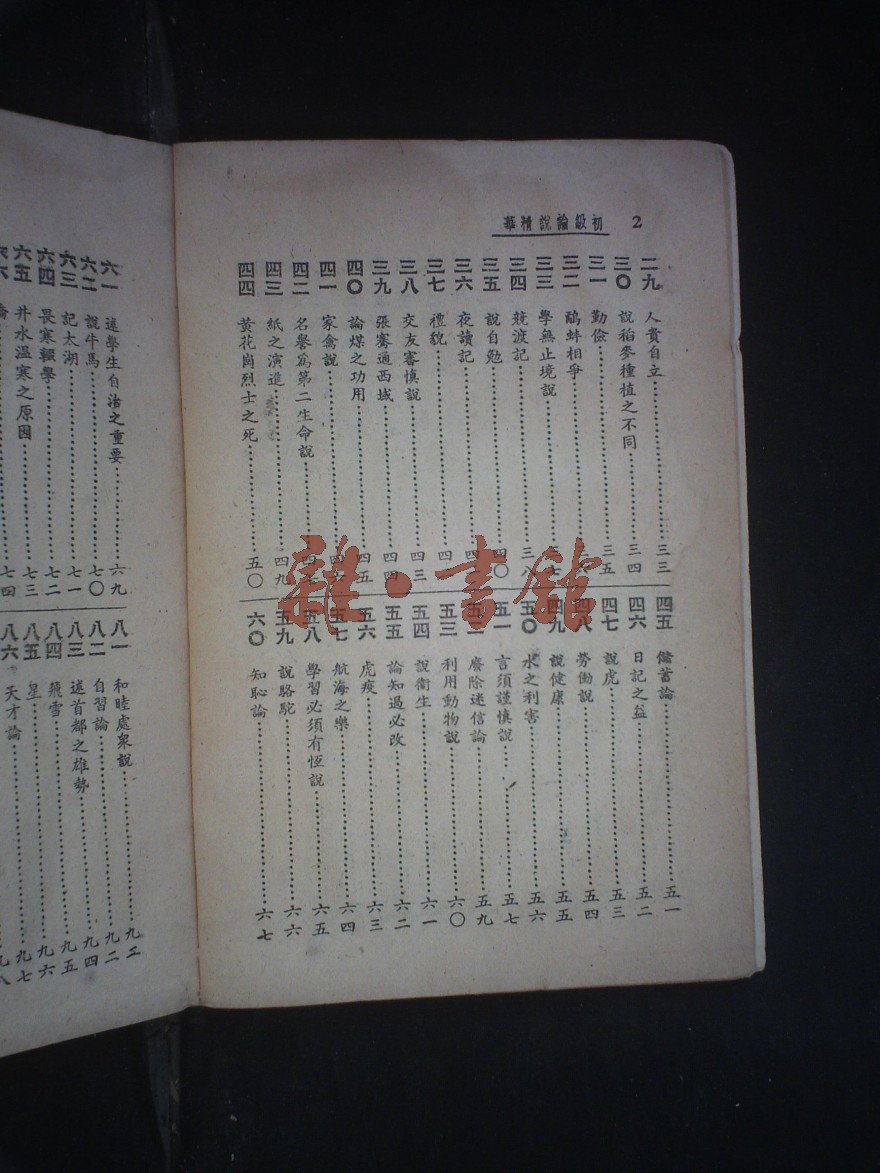 2 初級論說精華
二九 人貴自立 三三
三〇 說稻麥種植之不同 三四
三一 勤儉 三五
三二 鷸蚌相爭
三三 學無止境說
三四 競渡記 三八
三五 說自勉 四〇
三六 夜讀記
三七 禮貌
三八 交友審慎說 四三
三九 張騫通西域 四四
四〇 論煤之功用 四五
四一 家禽說
四二 名譽爲第二生命說
四三 紙之演進 四九
四四 黃花崗烈士之死 五〇
四五 儲蓄論 五一
四六 日記之益 五二
四七 說虎 五三
四八 勞働說 五四
四九 說健康 五五
五〇 水之利害 五六
五一 言須謹慎說 五七
五二 廢除迷信論 五九
五三 利用動物說 六〇
五四 說衞生 六一
五五 論知過必改 六二
五六 虎疫 六三
五七 航海之樂 六四
五八 學習必須有恆說 六五
五九 說駱駝 六六
六〇 知恥論 六七
六一 述學生自治之重要 六九
六二 說牛馬 七〇
六三 記太湖 七一
六四 畏寒輟學 七二
六五 井水溫寒之原因 七三
六六 七四
八一 和睦處衆說
八二 自習論 九二
八三 述首都之雄勢 九四
八四 飛雪 九五
八五 星 九六
八六 天才論 九七
九八
雜·書館